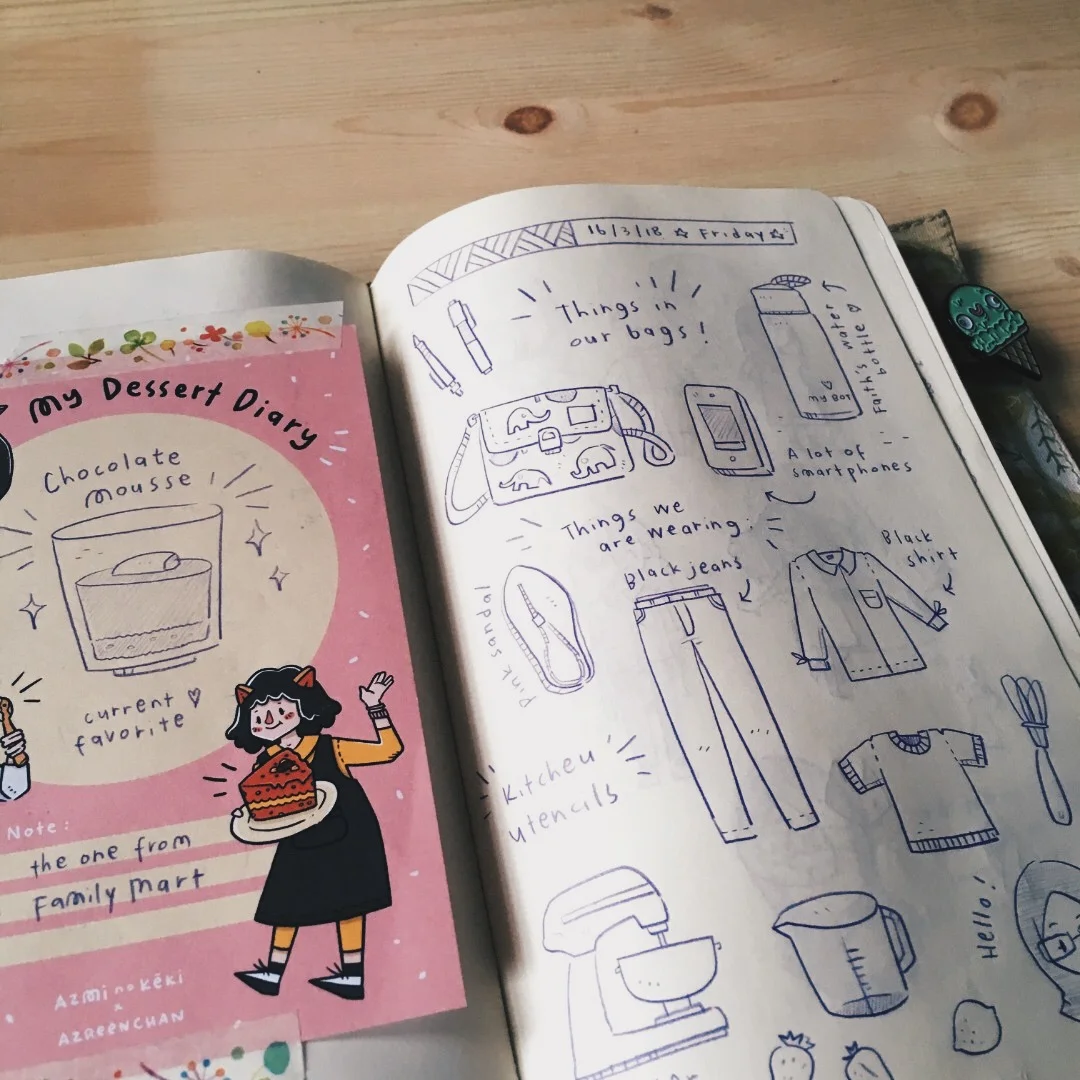 My Dessert Diary
Chocolate
mousse
current ♡
favorite
Note:
the one from
Family Mart
AZMI no KĒKI
x
AZREENCHAN
16/3/18 ☆ Friday ☆
Things in
our bags!
Faith's water
bottle ♡
my BOT
A lot of
smartphones
Things we
are wearing:
Black jeans
Black
shirt
pink sandal
Kitchen
utencils
Hello!